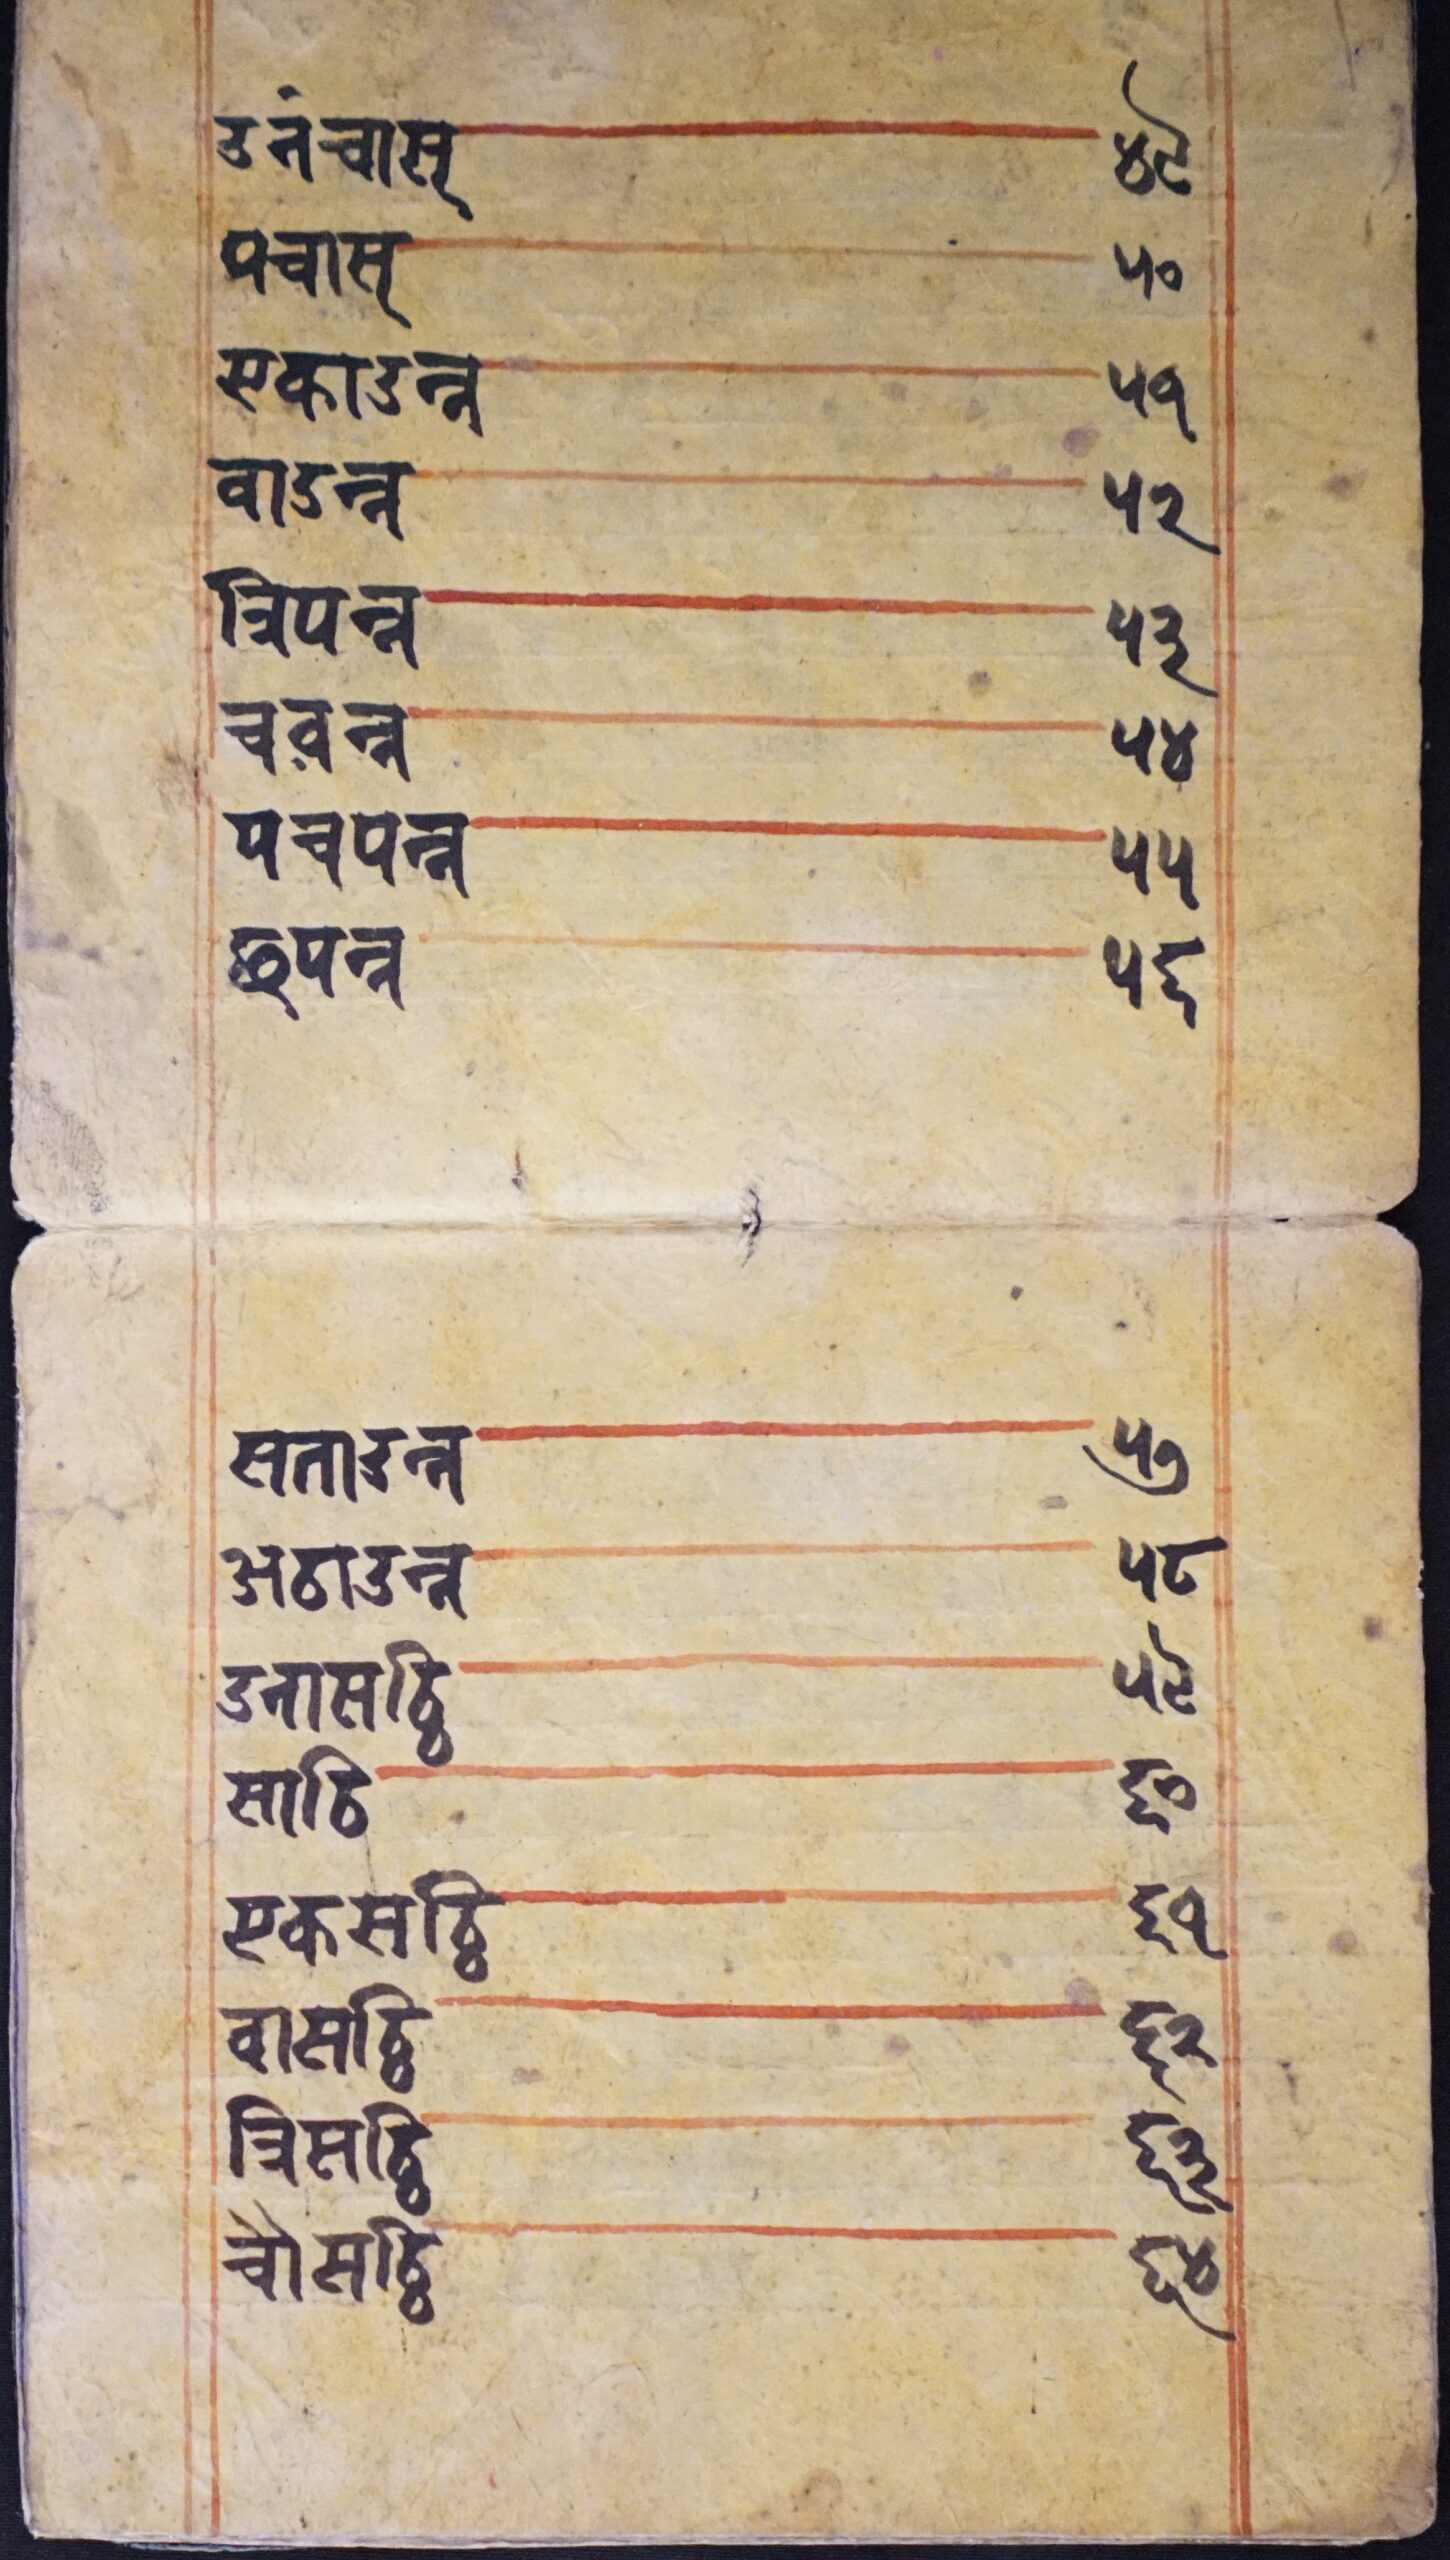 उनंचास् ४९
पचास् ५०
एकाउन्न ५१
वाउन्न ५२
त्रिपन्न ५३
चव़न्न ५४
पचपन्न ५५
छ्पन्न ५६
सताउन्न ५७
अठाउन्न ५८
उनासठ्ठि ५९
साठि ६०
एकसठ्ठि ६१
वासठ्ठि ६२
त्रिसठ्ठि ६३
चौसठ्ठि ६४